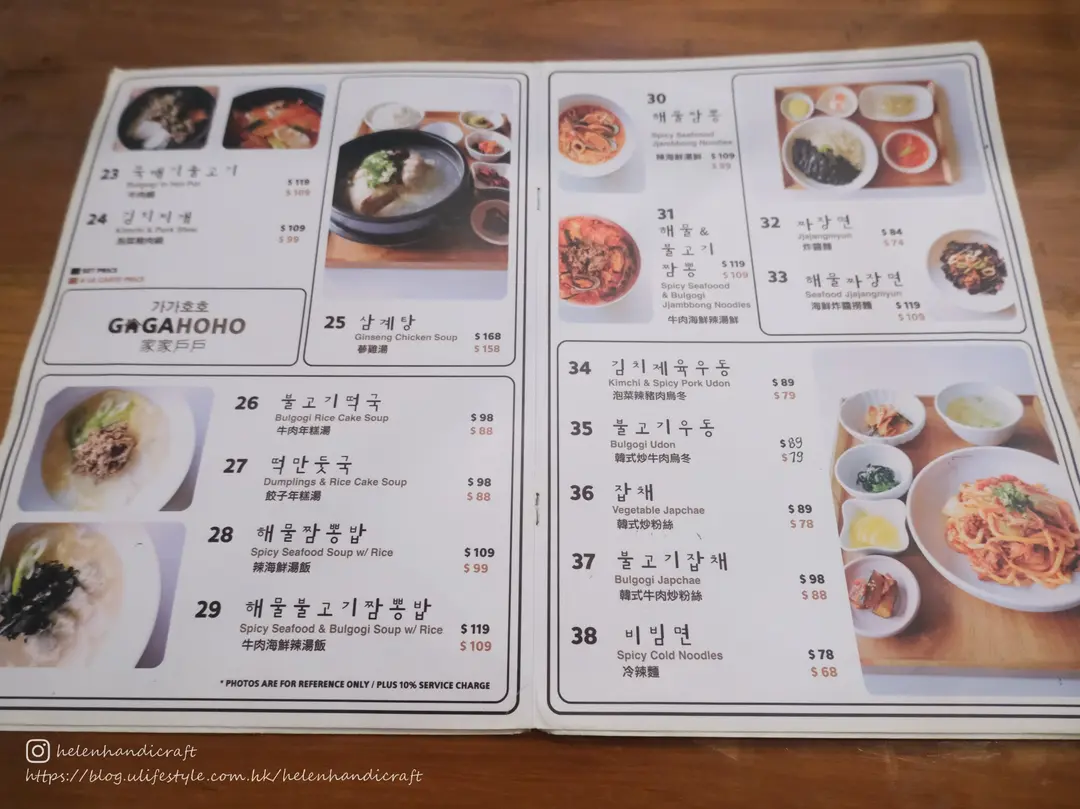 23 뚝배기불고기
Bulgogi in Hot Pot
牛肉鍋
$ 119
$ 109
24 김치찌개
Kimchi & Pork Stew
泡菜豬肉鍋
$ 109
$ 99
SET PRICE
A LA CARTE PRICE
가가호호
GAGAHOHO
家家戶戶
25 삼계탕
Ginseng Chicken Soup $ 168
蔘雞湯 $ 158
26 불고기떡국
Bulgogi Rice Cake Soup $ 98
牛肉年糕湯 $ 88
27 떡만둣국
Dumplings & Rice Cake Soup $ 98
餃子年糕湯 $ 88
28 해물짬뽕밥
Spicy Seafood Soup w/ Rice $ 109
辣海鮮湯飯 $ 99
29 해물불고기짬뽕밥
Spicy Seafood & Bulgogi Soup w/ Rice $ 119
牛肉海鮮辣湯飯 $ 109
* PHOTOS ARE FOR REFERENCE ONLY / PLUS 10% SERVICE CHARGE
30
해물짬뽕
Spicy Seafoood
Jjambbong Noodles
辣海鮮湯麵 $ 109
$ 99
31
해물 &
불고기
짬뽕 $ 119
$ 109
Spicy Seafoood
& Bulgogi
Jjambbong Noodles
牛肉海鮮辣湯鮮
32 짜장면 $ 84
Jjajangmyun $ 74
炸醬麵
33 해물짜장면
Seafood Jjajangmyun
海鮮炸醬撈麵 $ 119
$ 109
34 김치제육우동
Kimchi & Spicy Pork Udon $ 89
泡菜辣豬肉烏冬 $ 79
35 불고기우동
Bulgogi Udon $ 89
韓式炒牛肉烏冬 $ 79
36 잡채
Vegetable Japchae $ 89
韓式炒粉絲 $ 78
37 불고기잡채
Bulgogi Japchae $ 98
韓式牛肉炒粉絲 $ 88
38 비빔면
Spicy Cold Noodles $ 78
冷辣麵 $ 68
helenhandicraft
https://blog.ulifestyle.com.hk/helenhandicraft